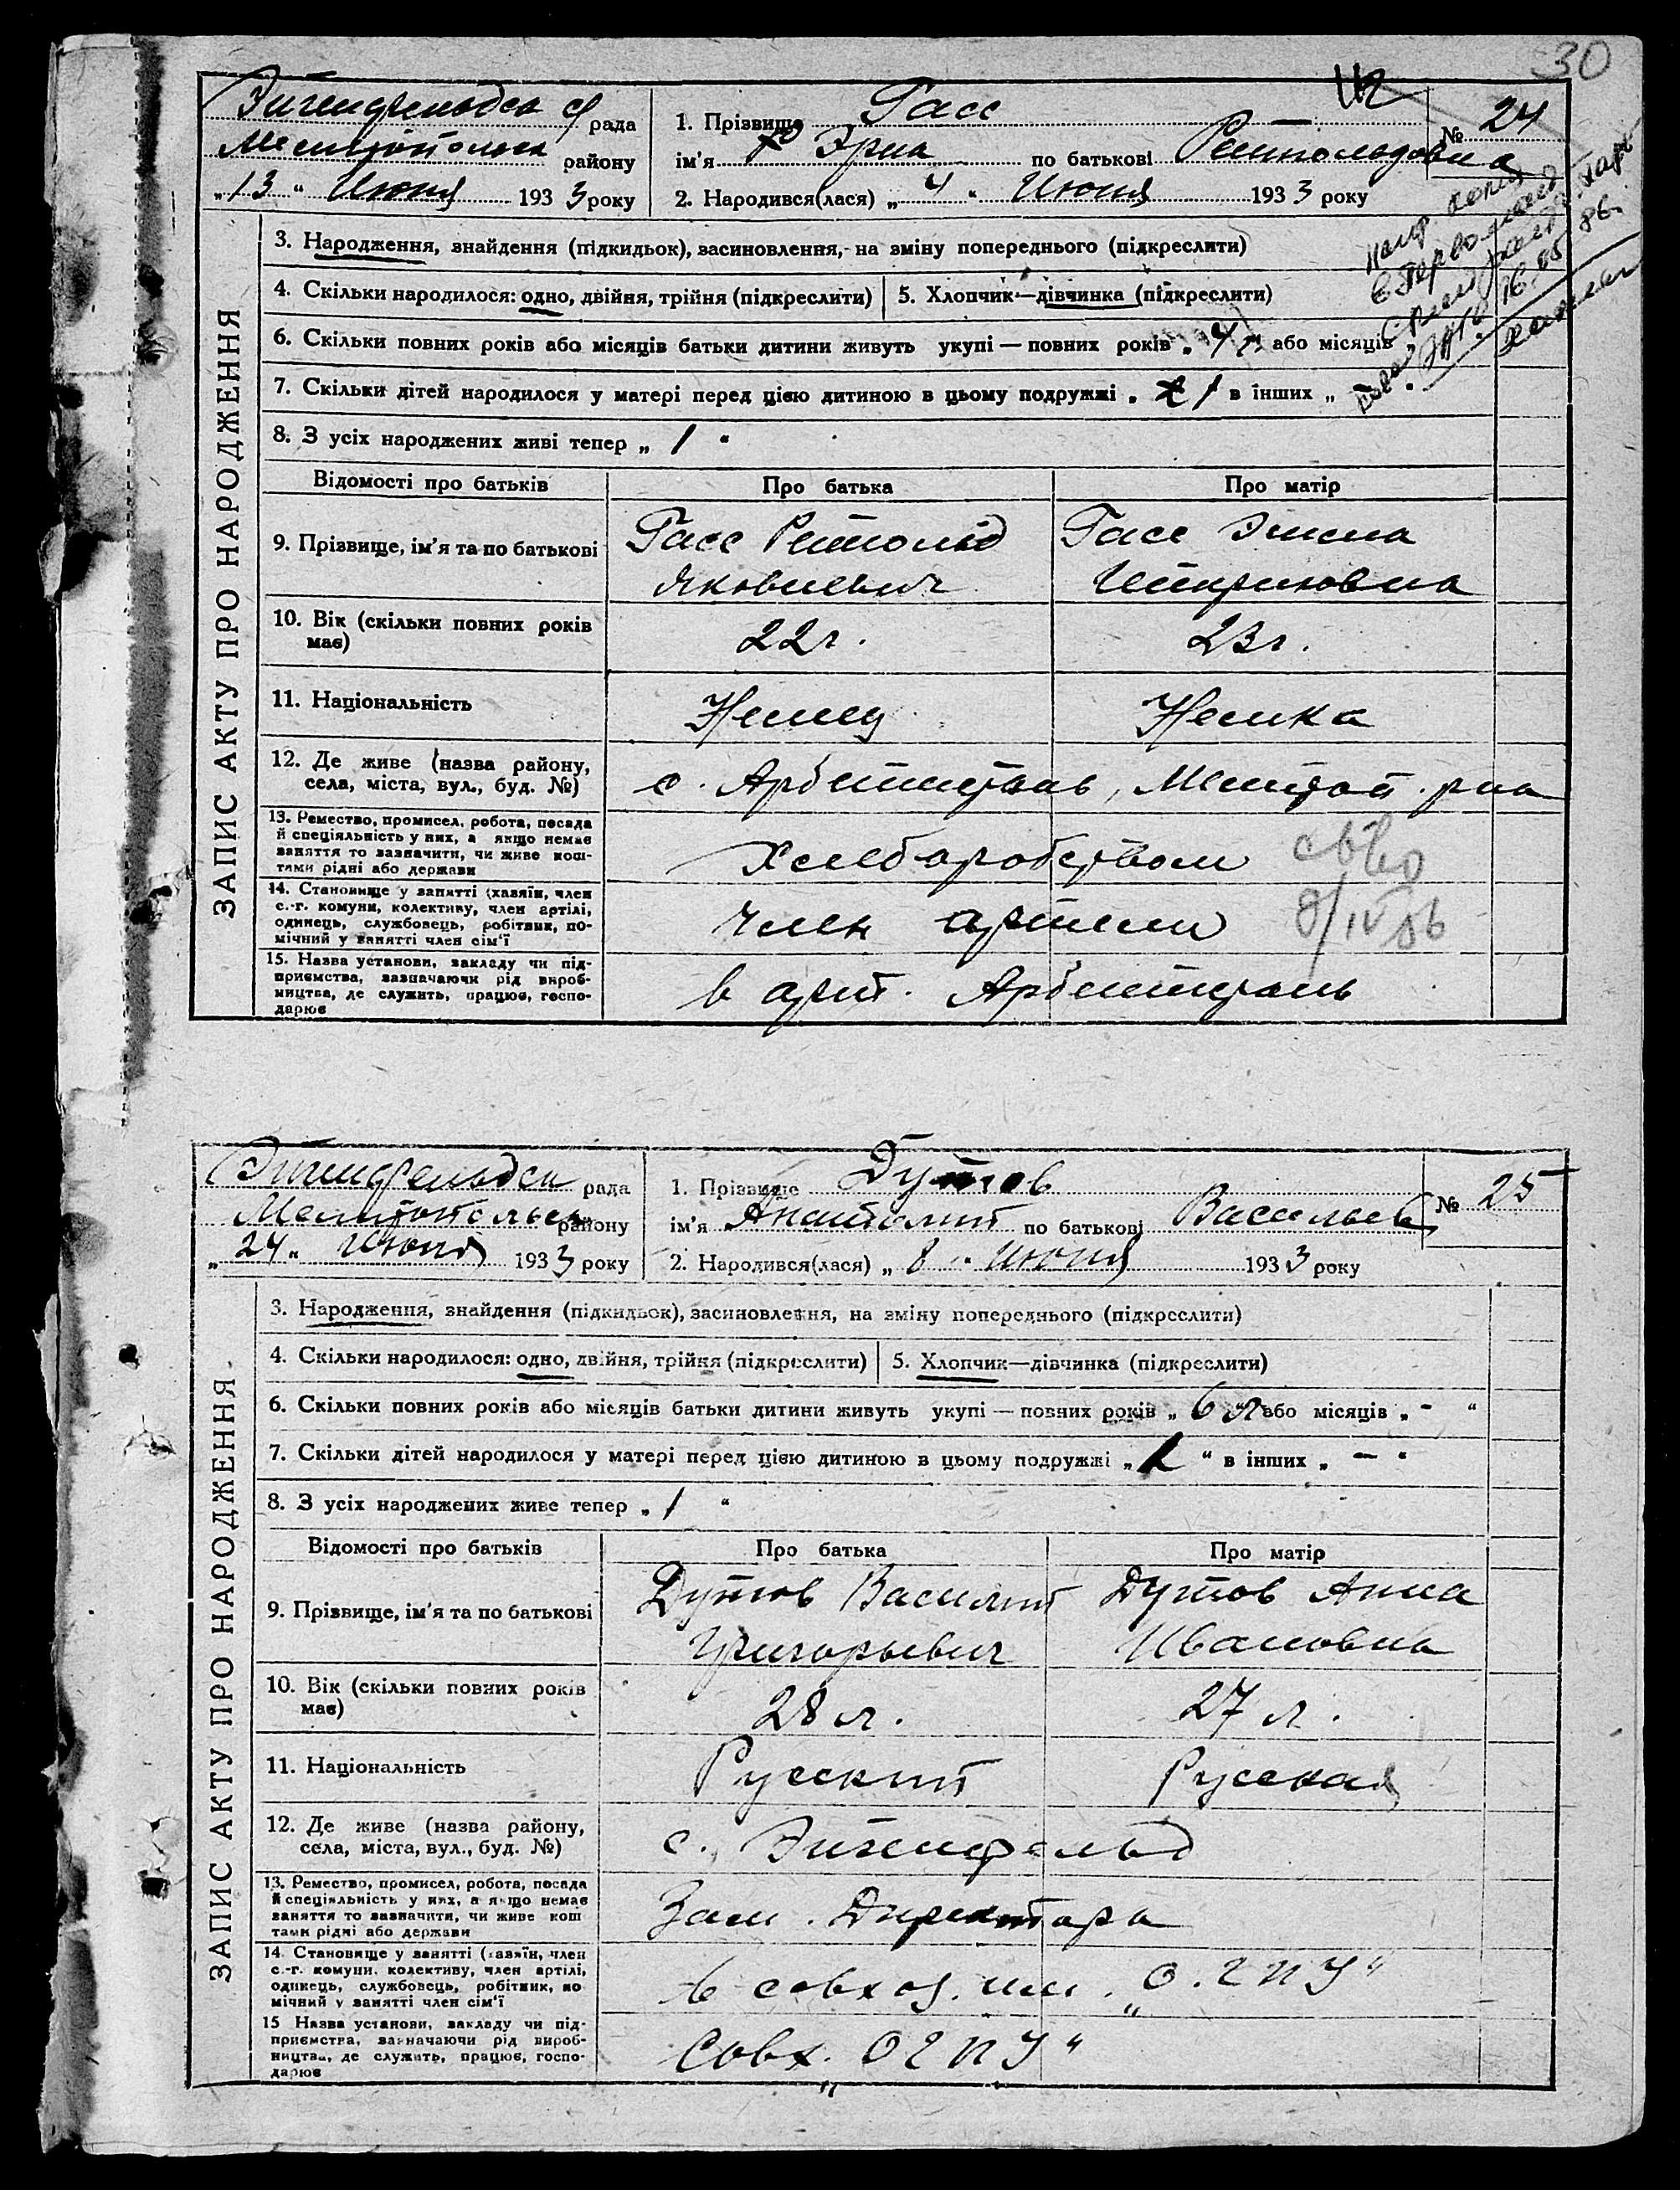 30
Эйгенфельдск с/ рада
Мелитопольск району
„13“ Июня 1933 року
1. Прізвище Гасс
№ 24
ім'я Эрна по батькові Рейнгольдовна
2. Народився(лася) „4“ Июня 1933 року
ЗАПИС АКТУ ПРО НАРОДЖЕННЯ
3. Народження, знайдення (підкидьок), засиновлення, на зміну попереднього (підкреслити)
4. Скільки народилося: одно, двійня, трійня (підкреслити)
5. Хлопчик—дівчинка (підкреслити)
6. Скільки повних років або місяців батьки дитини живуть укупі — повних років „4 г.“ або місяців „
7. Скільки дітей народилося у матері перед цією дитиною в цьому подружжі „ 1 в інших „
8. З усіх народжених живі тепер „ 1 “
Відомості про батьків
Про батька
Про матір
9. Прізвище, ім'я та по батькові
Гасс Рейнольд
Яковлевич
Гасс
10. Вік (скільки повних років має)
22 г.
23 г.
11. Національність
Немец
Немка
12. Де живе (назва району, села, міста, вул., буд. №)
с. Арбейтсталь, Мелитоп. р-на
13. Ремество, промисел, робота, посада й спеціяльність у них, а якщо немає заняття то зазначити, чи живе коштами рідні або держави
Хлеборобством
14. Становище у занятті (хазяїн, член с.-г. комуни, колективу, член артілі, одинець, службовець, робітник, помічний у занятті член сім'ї
член артели
15. Назва установи, закладу чи підприємства, зазначаючи рід виробництва, де служить, працює, господарює
в арт. Арбейтсталь
Эйгенфельдск рада
Мелитопольск району
„24“ Июня 1933 року
1. Прізвище Дутов
№ 25
ім'я Анатолий по батькові Васильев
2. Народився(лася) „8“ Июня 1933 року
ЗАПИС АКТУ ПРО НАРОДЖЕННЯ
3. Народження, знайдення (підкидьок), засиновлення, на зміну попереднього (підкреслити)
4. Скільки народилося: одно, двійня, трійня (підкреслити)
5. Хлопчик—дівчинка (підкреслити)
6. Скільки повних років або місяців батьки дитини живуть укупі — повних років „6 л“ або місяців „ - “
7. Скільки дітей народилося у матері перед цією дитиною в цьому подружжі „ “ в інших „ — “
8. З усіх народжених живе тепер „ 1 “
Відомості про батьків
Про батька
Про матір
9. Прізвище, ім'я та по батькові
Дутов Василий
Григорьевич
Дутов Анна
Ивановна
10. Вік (скільки повних років має)
28 л.
27 л.
11. Національність
Русский
Русская
12. Де живе (назва району, села, міста, вул., буд. №)
с. Эйгенфельд
13. Ремество, промисел, робота, посада й спеціяльність у них, а якщо немає заняття то зазначити, чи живе коштами рідні або держави
Зам. Директора
14. Становище у занятті (хазяїн, член с.-г. комуни, колективу, член артілі, одинець, службовець, робітник, помічний у занятті член сім'ї
в совхоз. им. „О.Г.П.У“
15 Назва установи, закладу чи підприємства, зазначаючи рід виробництва, де служить, працює, господарює
Совх. „ОГПУ“